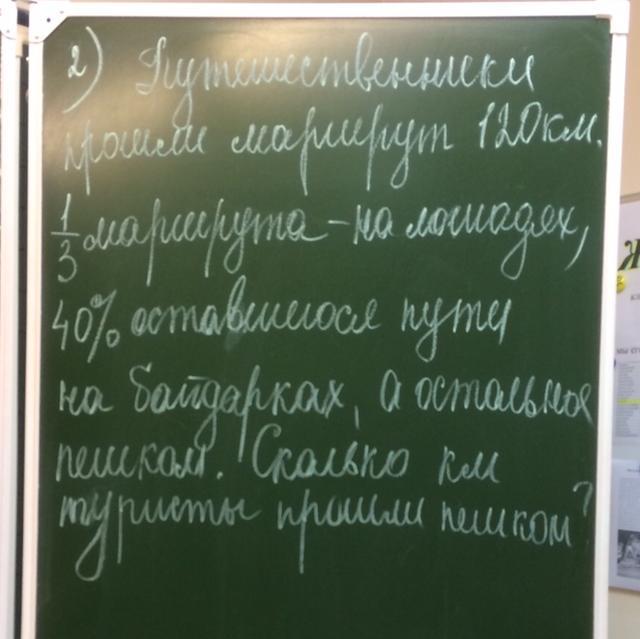 2) Путешественники
прошли маршрут 120 км.
1/3 маршрута - на лошадях,
40% оставшегося пути
на байдарках, а остальное
пешком. Сколько км
туристы прошли пешком?